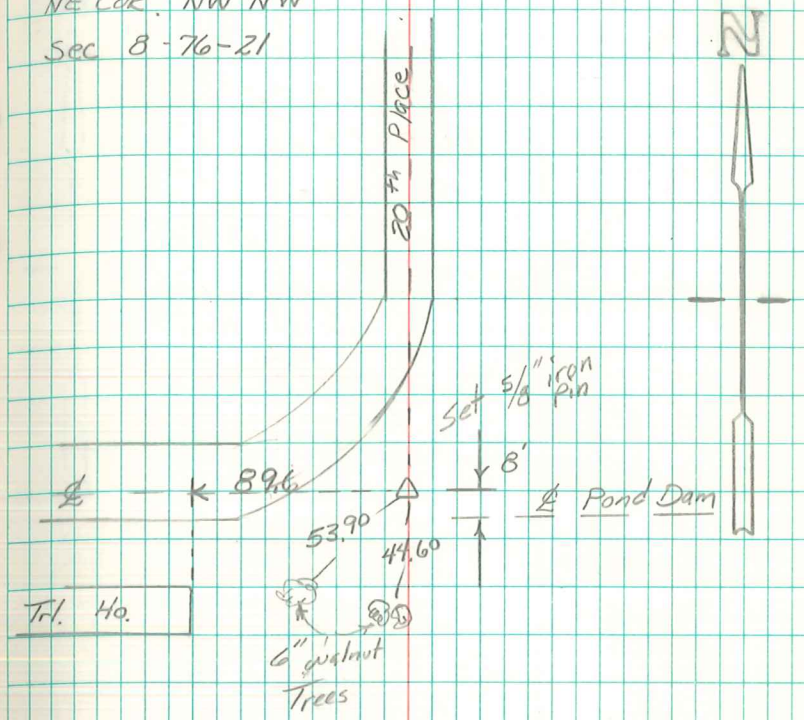 NE COR. NW NW
Sec 8-76-21
N
20th Place
Set 5/8" iron pin
8'
℄ 89.6
℄ Pond Dam
53.90
44.60
Trl. Ho.
6" walnut
Trees